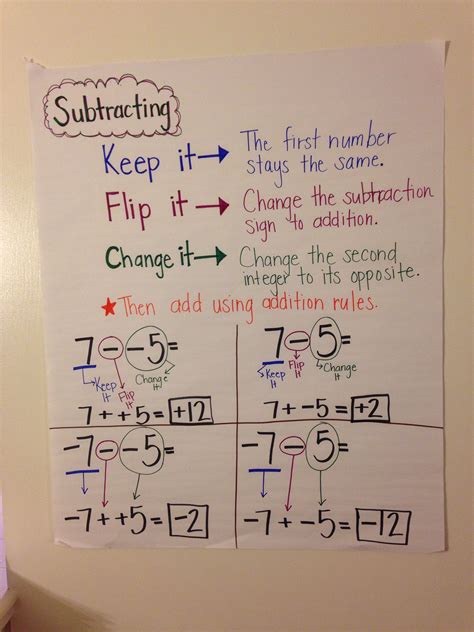 Subtracting
Keep it → The first number
stays the same.
Flip it → Change the subtraction
sign to addition.
Change it → Change the second
integer to its opposite.
★Then add using addition rules.
7 - -5=
Keep it
Flip it
Change it
7 + +5 = +12
7 - 5=
Keep it
Flip it
Change it
7 + -5 = +2
-7 - -5=
-7 + +5 = -2
-7 - 5=
-7 + -5 = -12